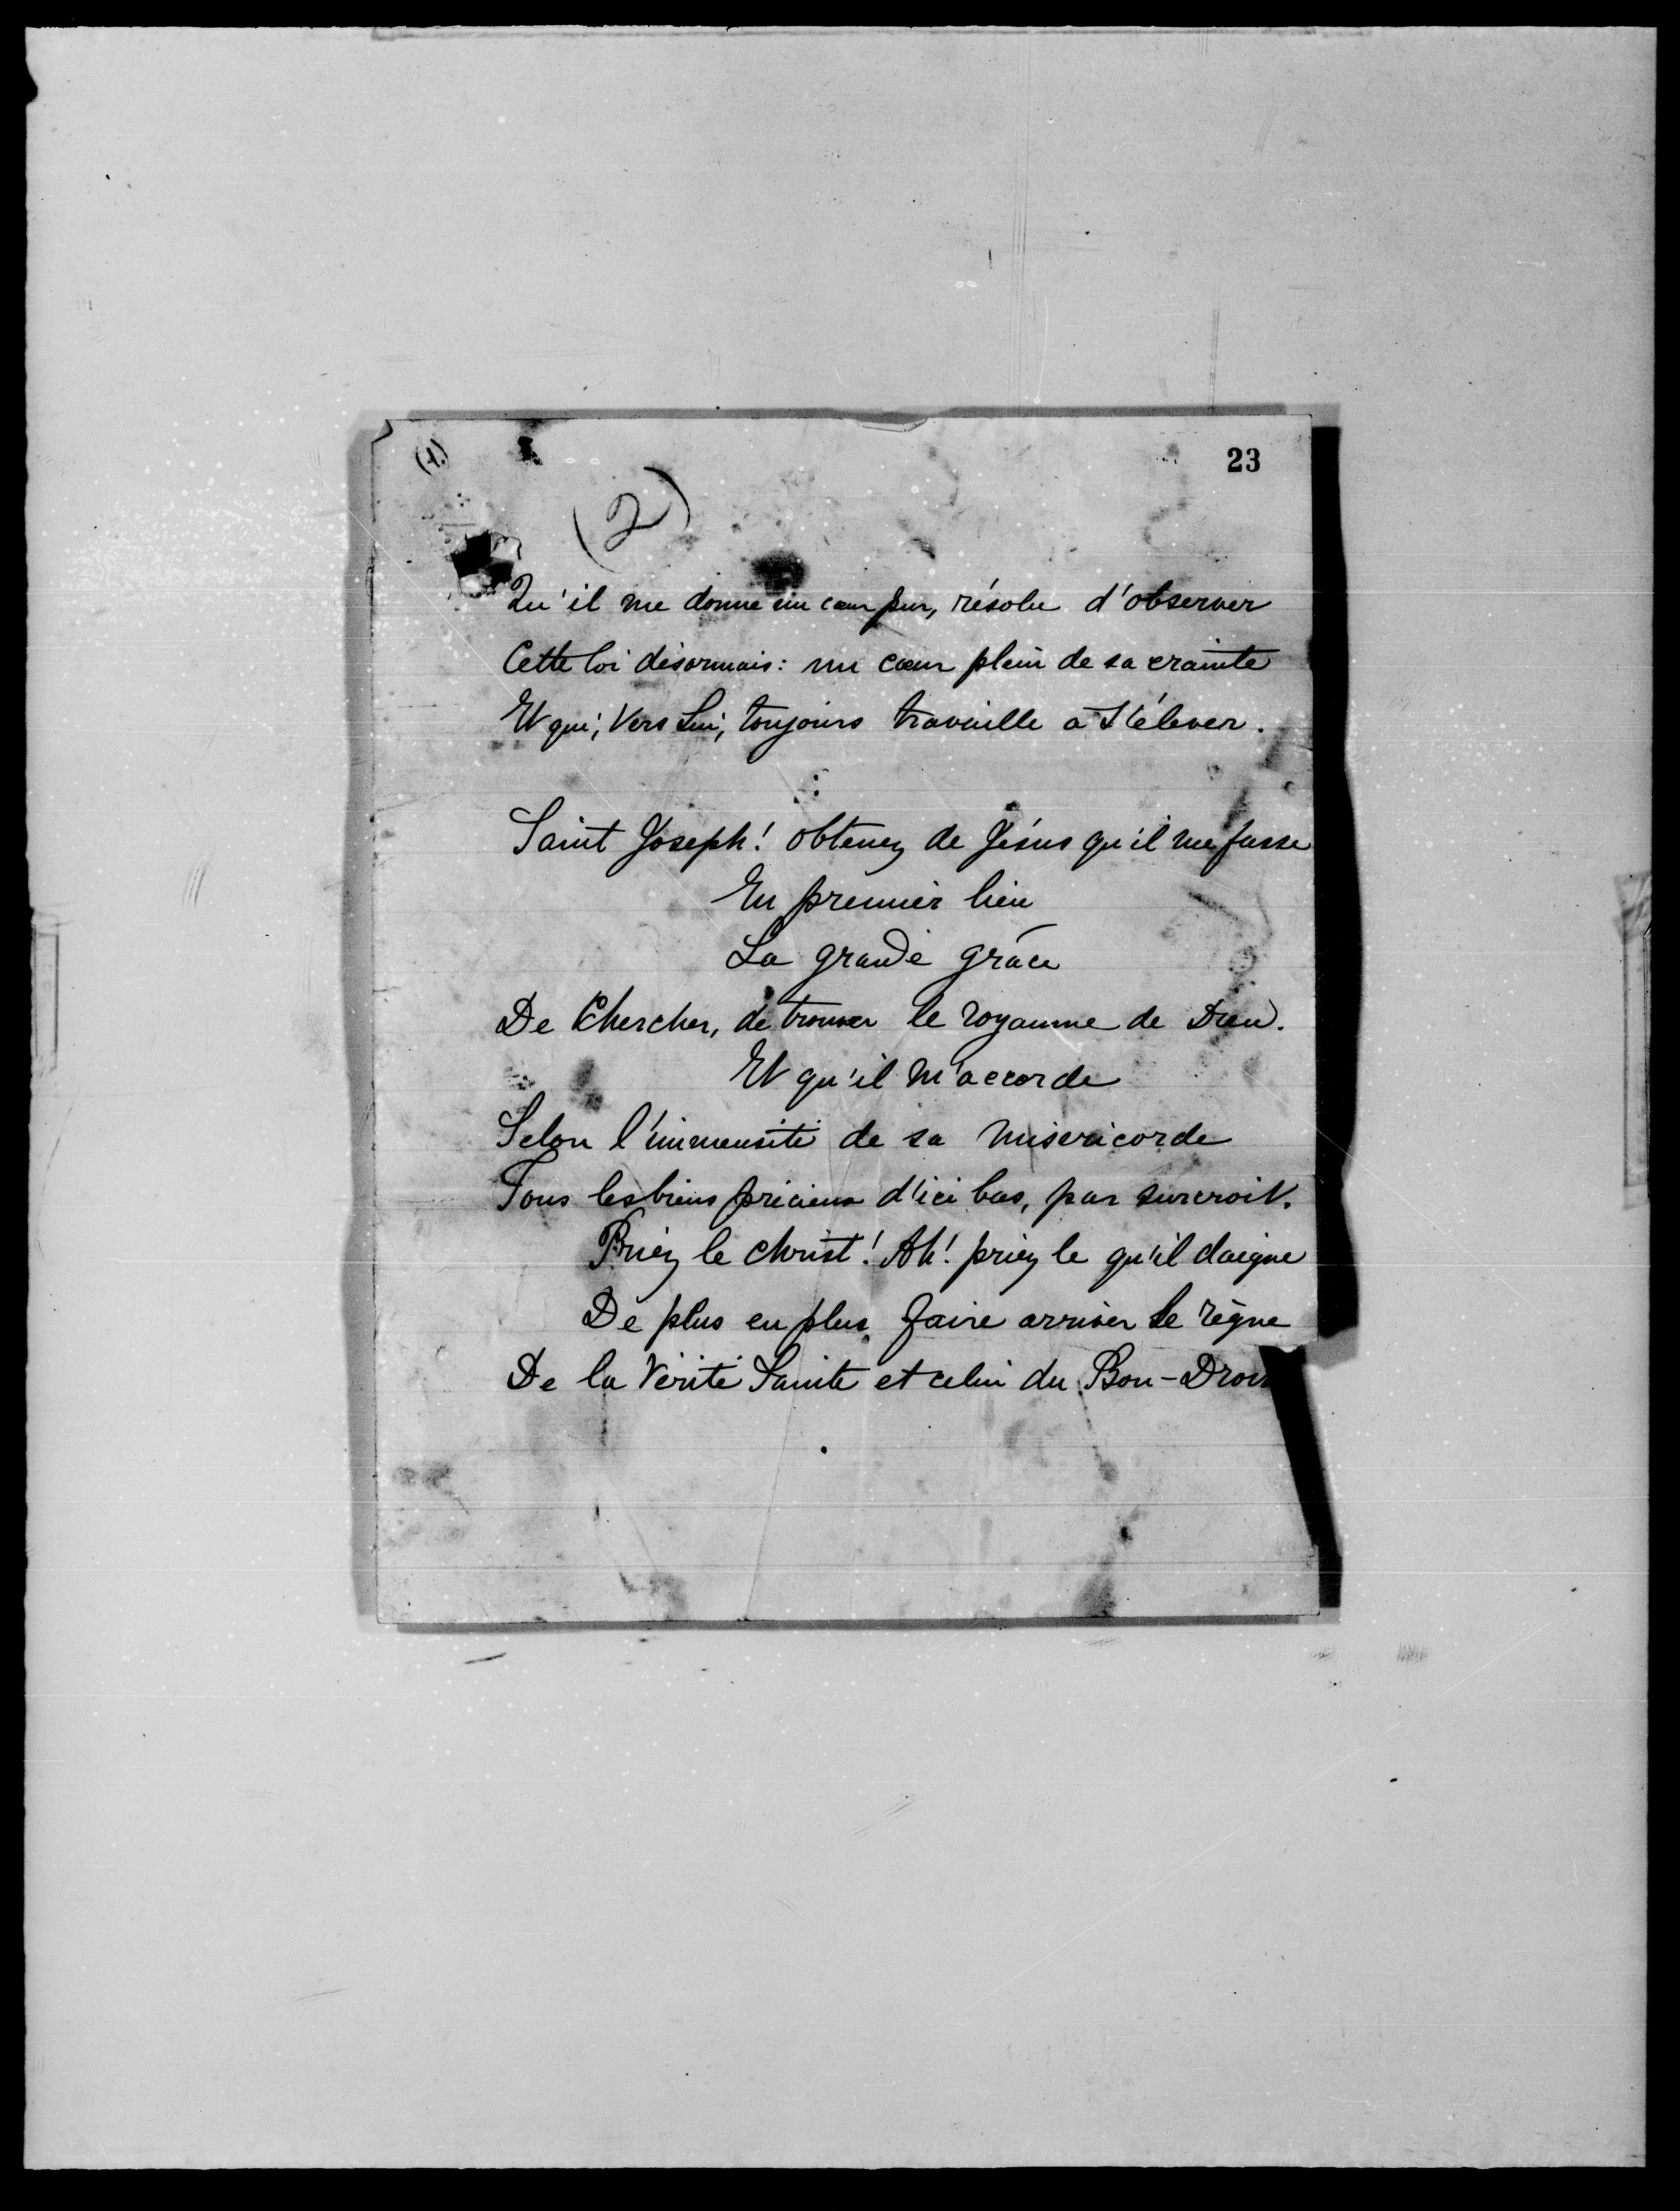 (1.)
23
(2)
Qu'il me donne un cœur pur, résolu d'observer
Cette loi désormais: un cœur plein de sa crainte
Et qui, Vers Lui, toujours travaille a s'élever.
Saint Joseph! obtenez de Jésus qu'il me fasse
En premier lieu
La grande grâce
De Chercher, de trouver le royaume de Dieu.
Et qu'il m'accorde
Selon l'immensité de sa misericorde
Tous les biens précieux d'ici bas, par surcroit.
Priez le Christ! Ah! priez le qu'il daigne
De plus en plus faire arriver le règne
De la Vérité Sainte et celui du Bon-Droit